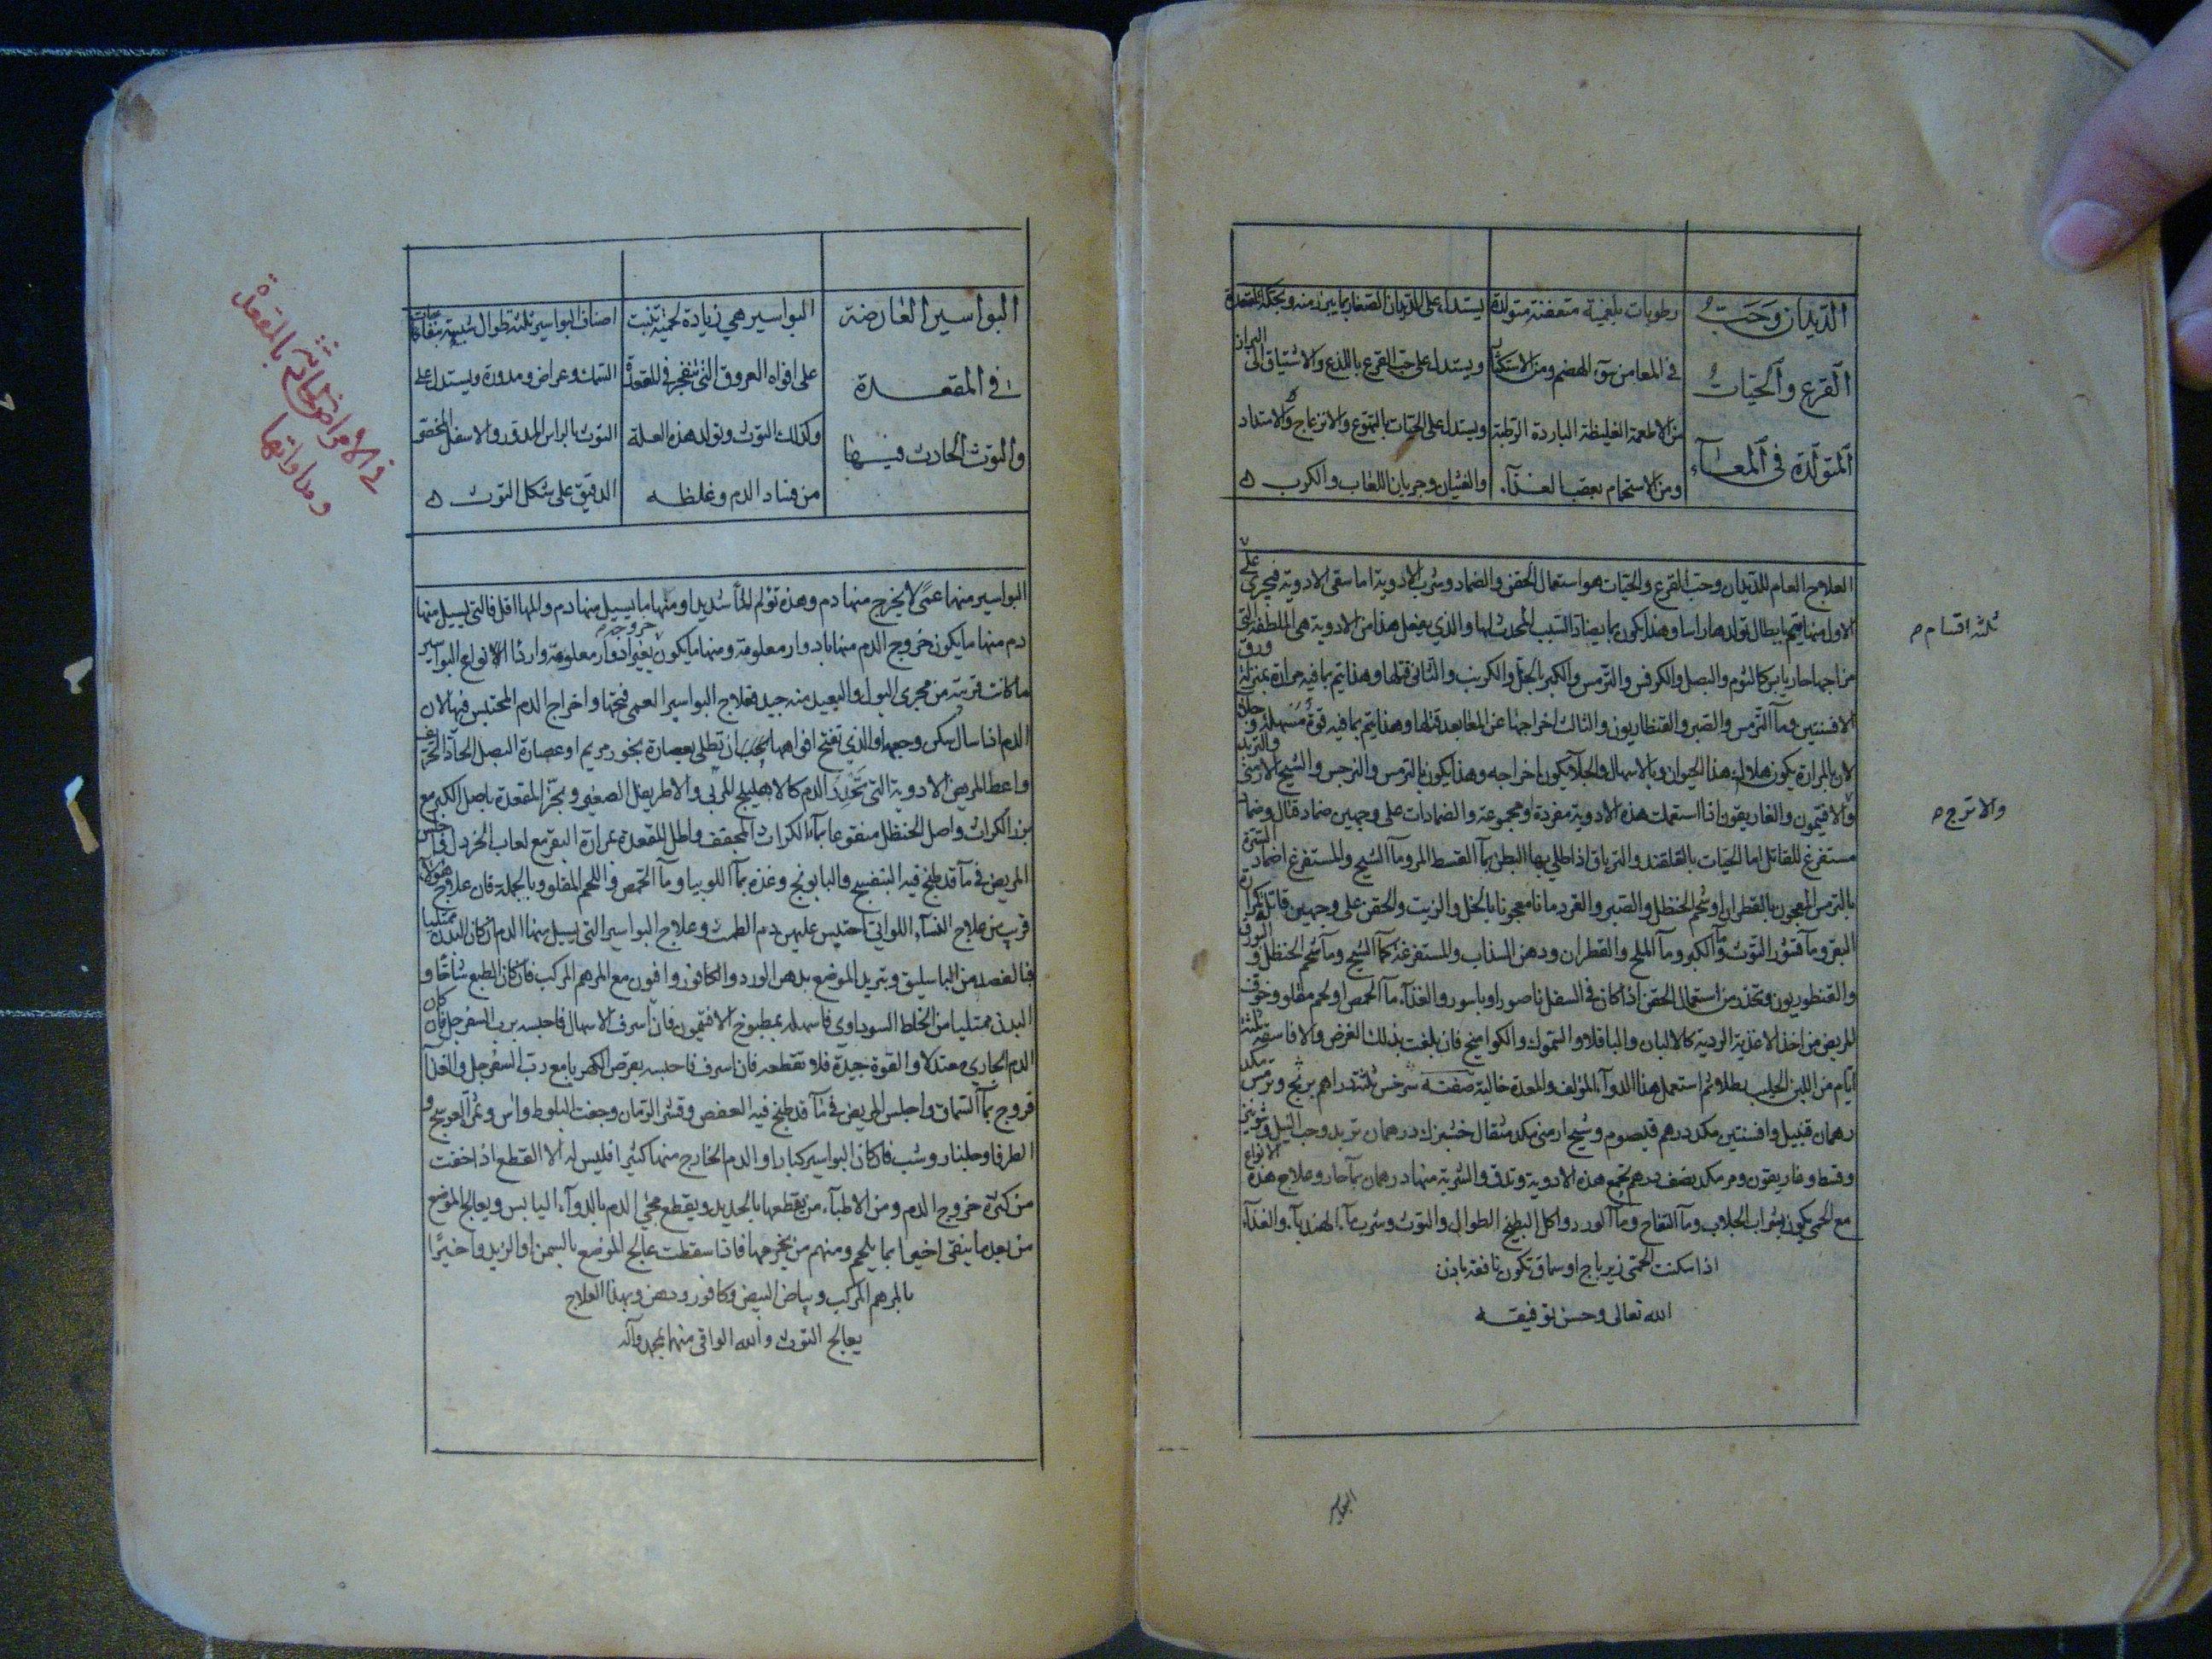 الديدان وحب
القرع والحيات
المتولدة في المعاء
رطوبات بلغمية متعفنة متولدة
في المعا من سوء الهضم ومن الاستكثار
من الاطعمة الغليظة الباردة الرطبة
ومن الاستحمام بعقب الغذاء
يستدل على الديدان الصغار بما يبرز منه وبحكة المقعدة
ويستدل على حب القرع باللذع والاشتياق الى البراز
ويستدل على الحيات بالتهوع والانزعاج والامتداد
والغثيان وجريان اللعاب والكرب
العلاج العام للديدان وحب القرع والحيات هو استعمال الحقن والضماد وشرب الادوية اما سقى الادوية فيجري على
ثلثة اقسام
الاول منها يتم بابطال تولدها راسا وهذا يكون بما يضاد السبب المحدث لها والذي يفعل هذا من الادوية هي الملطفة التي
من اجها حار يابس كالثوم والبصل والكرفس والترمس والكبر بالخل والكرنب والثاني قتلها وهذا يتم بما فيه مرارة بمنزلة ورق
الافسنتين وماء الترمس والصبر والقنطاريون والثالث اخراجها عن المعا بعد قتلها وهذا يتم بما فيه قوة مسهلة وجلاء
لان بالمرارة يكون هلاك هذا الحيوان وبالاسهال والجلاء يكون اخراجه وهذا يكون بالترمس والنرجس والشيح الارمني والتربد
والاترج
والافتيمون والغاريقون اذا استعملت هذه الادوية مفردة او مجموعة والضمادات على وجهين ضماد قتال وضماد
مستفرغ للقاتل اما الحيات بالقلقند والترياق اذا طلي بها البطن بماء القسط المر وماء الشيح والمستفرغ اضماد السرة
بالترمس المعجون بالقطران او شحم الحنظل والصبر والقردمانا معجونا بالخل والزيت والحقن على وجهين قاتل كمرارة
البقر وماء قشور التوث وماء الكبر وماء الملح والقطران ودهن السذاب والمستفرغة كماء الشيح وماء شحم الحنظل والبورق
والقنطوريون وتحذر من استعمال الحقن اذا كان في السفل ناصور او باسور والغذاء ماء الحمص او لحم مقلو وخوف
المريض من اخذ الاغذية الردية كالالبان والباقلا والسموك والكواميخ فان بلغت بذلك الغرض والا فاسقه ثلثة
ايام من اللبن الحليب رطلا وثم استعمل هذا الدواء المؤلف والمعدة خالية صفته سرخس ثلثة دراهم برنج وترمس مكد
درهمان قنبيل وافسنتين مكد درهم قيصوم وشيح ارمني مكد مثقال خشيزك درهمان تربد وحب النيل وشونيز
وقسط وغاريقون ومر مكد نصف درهم تجمع هذه الادوية وتدق والشربة منها درهمان بماء حار وعلاج هذه الانواع
مع الحمى يكون بشراب الجلاب وماء التفاح وماء الورد واكل البطيخ الطوال والتوث وشرب ماء الهندباء والغذاء
اذا سكنت الحمى زيرباج او سماق تكون نافعة باذن
الله تعالى وحسن توفيقه
البواسير
في الامراض الحادثة بالمقعدة
ومداواتها
البواسير العارضة
في المقعدة
والتوث الحادث فيها
البواسير هي زيادة لحمية تنبت
على افواه العروق التي تنفجر في المقعدة
وكذلك التوث وتولد هذه العلة
من فساد الدم وغلظه
اصناف البواسير ثلثة طوال شبيهة بنفاخات
السمك وعراض ومدورة ويستدل على
التوث بالراس المدور والاسفل المخصر
الدقيق على شكل التوث
البواسير منها عمى لا يخرج منها دم وهذه تؤلم الما شديدا ومنها ما يسيل منها دم والمها اقل فالتي يسيل منها
دم منها ما يكون خروج الدم منها بادوار معلومة ومنها ما يكون خروجه بغير ادوار معلومة واردا الانواع البواسير
ما كانت قريبة من مجرى البول والبعيد منه جيد فعلاج البواسير العمى فتحها واخراج الدم المحتبس فيها لان
الدم اذا سال سكن وجعها والذي تفتح افواهها ان تطلى بعصارة بخور مريم او عصارة البصل الحادة
واعط المريض الادوية التي تحدر الدم كالاهليلج المربى والاطريفل الصغير وبخر المقعدة باصل الكبر مع
بزر الكراث واصل الحنظل منقوعا بماء الكراث المجفف واطل المقعدة بمرارة البقر مع لعاب الخردل واجلس
المريض في ماء قد طبخ فيه البنفسج والبابونج وغذه بماء اللوبيا وماء الحمص واللحم المقلو وبالجملة فان علاج هولاء
قريب من علاج النساء اللواتي احتبس عليهن دم الطمث وعلاج البواسير التي يسيل منها الدم ان كان البدن ممتليا
فبالفصد من الباسليق وتبريد الموضع بدهن الورد والكافور وافيون مع المرهم المركب فان كان الطبع شاخا و
البدن ممتليا من الخلط السوداوي فاسهله بمطبوخ الافتيمون فان اسرف الاسهال فاحبسه برب السفرجل فان كان
الدم الجاري معتدلا والقوة جيدة فلا تقطعه فان اسرف فاحبسه بقرص الكهربا مع رب السفرجل والغذا
فروج بماء السماق واجلس المريض في ماء قد طبخ فيه العفص وقشر الرمان وجفت البلوط واس وثمر العوسج و
الطرفا وجلنار وشب فان كان البواسير كبارا والدم الخارج منها كثيرا فليس له الا القطع اذا خفت
من كثرة خروج الدم ومن الاطباء من يقطعها بالحديد ويقطع مجي الدم بالدواء اليابس ويعالج الموضع
من بعد ما ينقى اخيرا بما يلحم ومنهم من يخرمها فاذا سقطت عالج الموضع بالسمن او الزبد واخيرا
بالمرهم المركب وبياض البيض وكافور ودهن وبهذا العلاج
يعالج التوث والله الواقي منهما بمحمد وآله